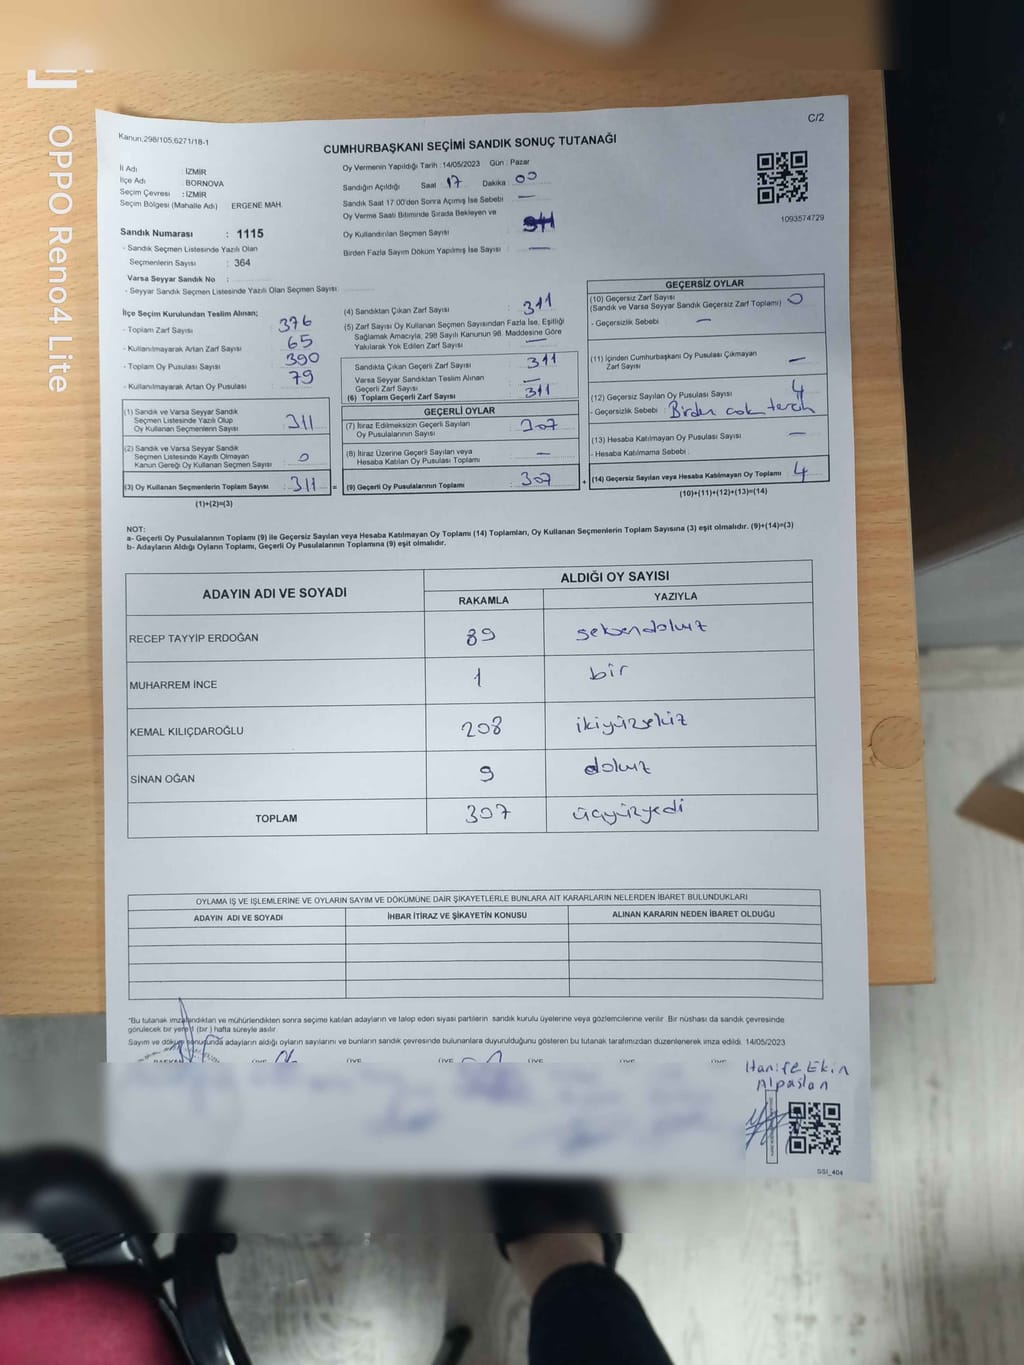 OPPO Reno4 Lite
Kanun.298/105,6271/18-1
C/2
CUMHURBAŞKANI SEÇİMİ SANDIK SONUÇ TUTANAĞI
İl Adı : İZMİR
İlçe Adı : BORNOVA
Seçim Çevresi : İZMİR
Seçim Bölgesi (Mahalle Adı) ERGENE MAH.
Sandık Numarası : 1115
- Sandık Seçmen Listesinde Yazılı Olan
Seçmenlerin Sayısı : 364
Varsa Seyyar Sandık No :
- Seyyar Sandık Seçmen Listesinde Yazılı Olan Seçmen Sayısı:
Oy Vermenin Yapıldığı Tarih : 14/05/2023 Gün : Pazar
Sandığın Açıldığı Saat 17 Dakika 00
Sandık Saat 17:00'den Sonra Açılmış İse Sebebi —
Oy Verme Saati Bitiminde Sırada Bekleyen ve
Oy Kullandırılan Seçmen Sayısı
Birden Fazla Sayım Döküm Yapılmış İse Sayısı —
1093574729
İlçe Seçim Kurulundan Teslim Alınan;
- Toplam Zarf Sayısı : 376
- Kullanılmayarak Artan Zarf Sayısı : 65
- Toplam Oy Pusulası Sayısı : 390
- Kullanılmayarak Artan Oy Pusulası : 79
(1) Sandık ve Varsa Seyyar Sandık
Seçmen Listesinde Yazılı Olup
Oy Kullanan Seçmenlerin Sayısı : 311
(2) Sandık ve Varsa Seyyar Sandık
Seçmen Listesinde Kayıtlı Olmayan
Kanun Gereği Oy Kullanan Seçmen Sayısı : 0
(3) Oy Kullanan Seçmenlerin Toplam Sayısı : 311 =
(1)+(2)=(3)
(4) Sandıktan Çıkan Zarf Sayısı : 311
(5) Zarf Sayısı Oy Kullanan Seçmen Sayısından Fazla İse, Eşitliği
Sağlamak Amacıyla, 298 Sayılı Kanunun 98. Maddesine Göre
Yakılarak Yok Edilen Zarf Sayısı : —
Sandıkta Çıkan Geçerli Zarf Sayısı : 311
Varsa Seyyar Sandıktan Teslim Alınan
Geçerli Zarf Sayısı : —
(6) Toplam Geçerli Zarf Sayısı : 311
GEÇERLİ OYLAR
(7) İtiraz Edilmeksizin Geçerli Sayılan
Oy Pusulalarının Sayısı : 307
(8) İtiraz Üzerine Geçerli Sayılan veya
Hesaba Katılan Oy Pusulası Toplamı : —
(9) Geçerli Oy Pusulalarının Toplamı : 307 +
GEÇERSİZ OYLAR
(10) Geçersiz Zarf Sayısı
(Sandık ve Varsa Seyyar Sandık Geçersiz Zarf Toplamı) : 0
- Geçersizlik Sebebi : —
(11) İçinden Cumhurbaşkanı Oy Pusulası Çıkmayan
Zarf Sayısı : —
(12) Geçersiz Sayılan Oy Pusulası Sayısı : 4
- Geçersizlik Sebebi : Birden çok tercih
(13) Hesaba Katılmayan Oy Pusulası Sayısı : —
- Hesaba Katılmama Sebebi :
(14) Geçersiz Sayılan veya Hesaba Katılmayan Oy Toplamı : 4
(10)+(11)+(12)+(13)=(14)
NOT:
a- Geçerli Oy Pusulalarının Toplamı (9) ile Geçersiz Sayılan veya Hesaba Katılmayan Oy Toplamı (14) Toplamları, Oy Kullanan Seçmenlerin Toplam Sayısına (3) eşit olmalıdır. (9)+(14)=(3)
b- Adayların Aldığı Oyların Toplamı, Geçerli Oy Pusulalarının Toplamına (9) eşit olmalıdır.
ADAYIN ADI VE SOYADI ALDIĞI OY SAYISI
RAKAMLA YAZIYLA
RECEP TAYYİP ERDOĞAN 89 seksendokuz
MUHARREM İNCE 1 bir
KEMAL KILIÇDAROĞLU 208 ikiyüzsekiz
SİNAN OĞAN 9 dokuz
TOPLAM 307 üçyüzyedi
OYLAMA İŞ VE İŞLEMLERİNE VE OYLARIN SAYIM VE DÖKÜMÜNE DAİR ŞİKAYETLERLE BUNLARA AİT KARARLARIN NELERDEN İBARET BULUNDUKLARI
ADAYIN ADI VE SOYADI İHBAR İTİRAZ VE ŞİKAYETİN KONUSU ALINAN KARARIN NEDEN İBARET OLDUĞU
*Bu tutanak imzalandıktan ve mühürlendikten sonra seçime katılan adayların ve talep eden siyasi partilerin sandık kurulu üyelerine veya gözlemcilerine verilir. Bir nüshası da sandık çevresinde
görülecek bir yere 1 (bir ) hafta süreyle asılır.
Sayım ve döküm sonunda adayların aldığı oyların sayılarını ve bunların sandık çevresinde bulunanlara duyurulduğunu gösteren bu tutanak tarafımızdan düzenlenerek imza edildi. 14/05/2023
Hanife Ekin
Alpaslan
SSI_404